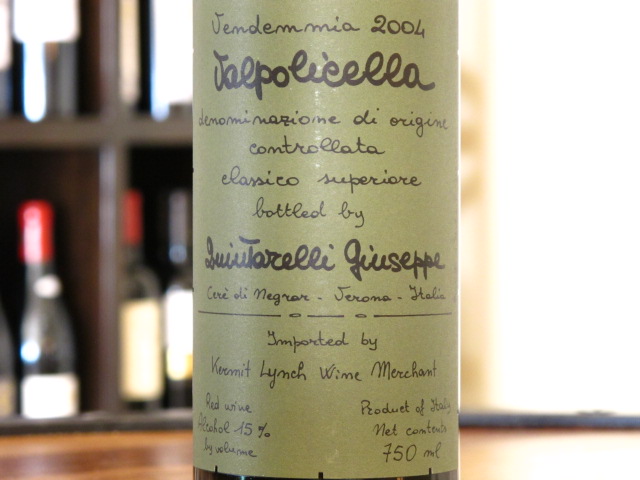 Vendemmia 2004
Valpolicella
denominazione di origine
controllata
classico superiore
bottled by
Quintarelli Giuseppe
Cerè di Negrar - Verona - Italia
Imported by
Kermit Lynch Wine Merchant
Red wine
Alcohol 15%
by volume
Product of Italy
Net contents
750 ml